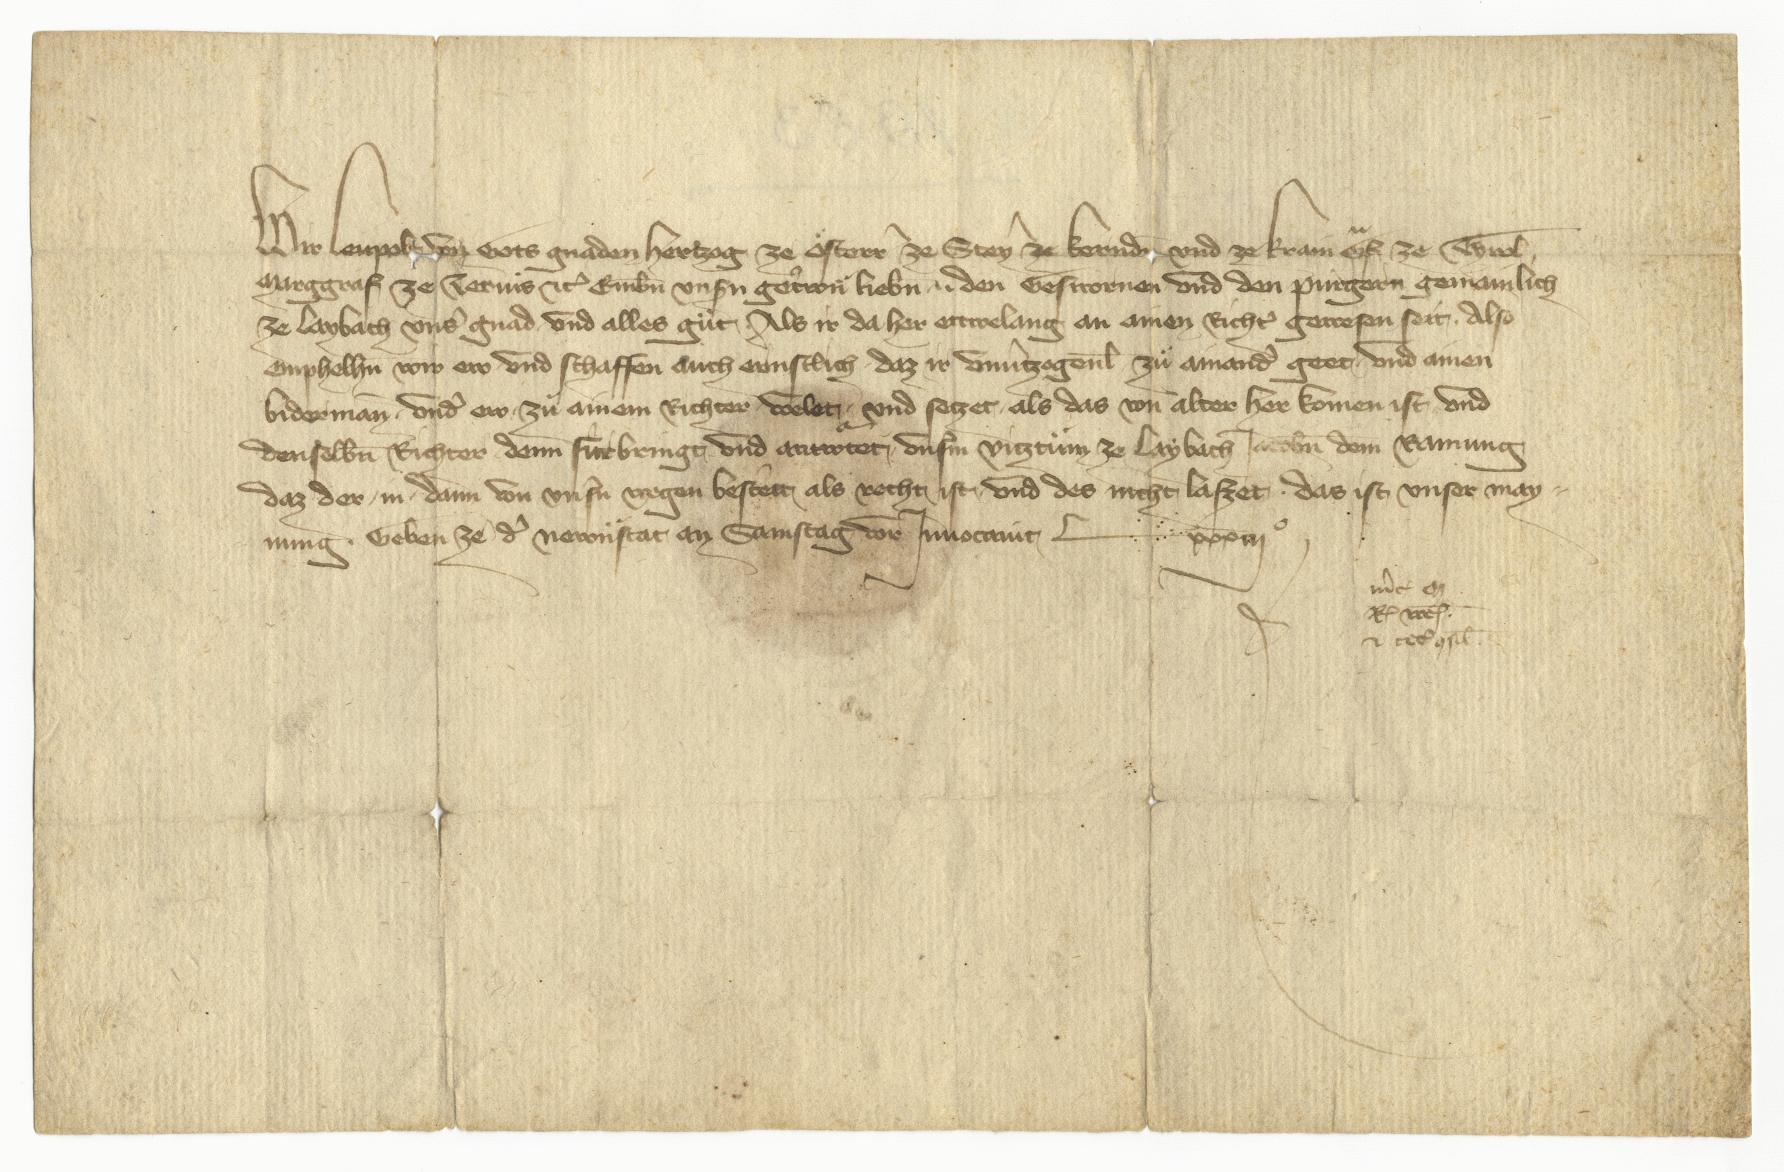 Wir Leupolt von Gots gnaden Hertzog ze Österr ze Steyr ze kerndn vnd ze krain Graf ze Tirol
Marggraf ze Teruis etc Embn vnsn getrewn liebn den Geswornen vnd den purgern gemainlich
ze Laybach vnser gnad vnd alles gůt Als ir da her ettwelang an ainen Richter gewesen seit. Also
emphelhn wir ew vnd schaffen auch ernstlich daz ir vnuerzogenl zů ainander geet vnd ainen
biderman vnder ew zů ainem Richter welet vnd setzet als das von alter her komen ist vnd
denselbn Richter denn fürbringt vnd antwrtet vnserm vitztům ze Laybach Jacobn dem Ramung
daz der in dann von vnsern wegen bestett als recht ist vnd des nicht laszet. das ist vnser may
nung. Geben ze der newnstat an Samstag vor Inuocauit L xxxiii°